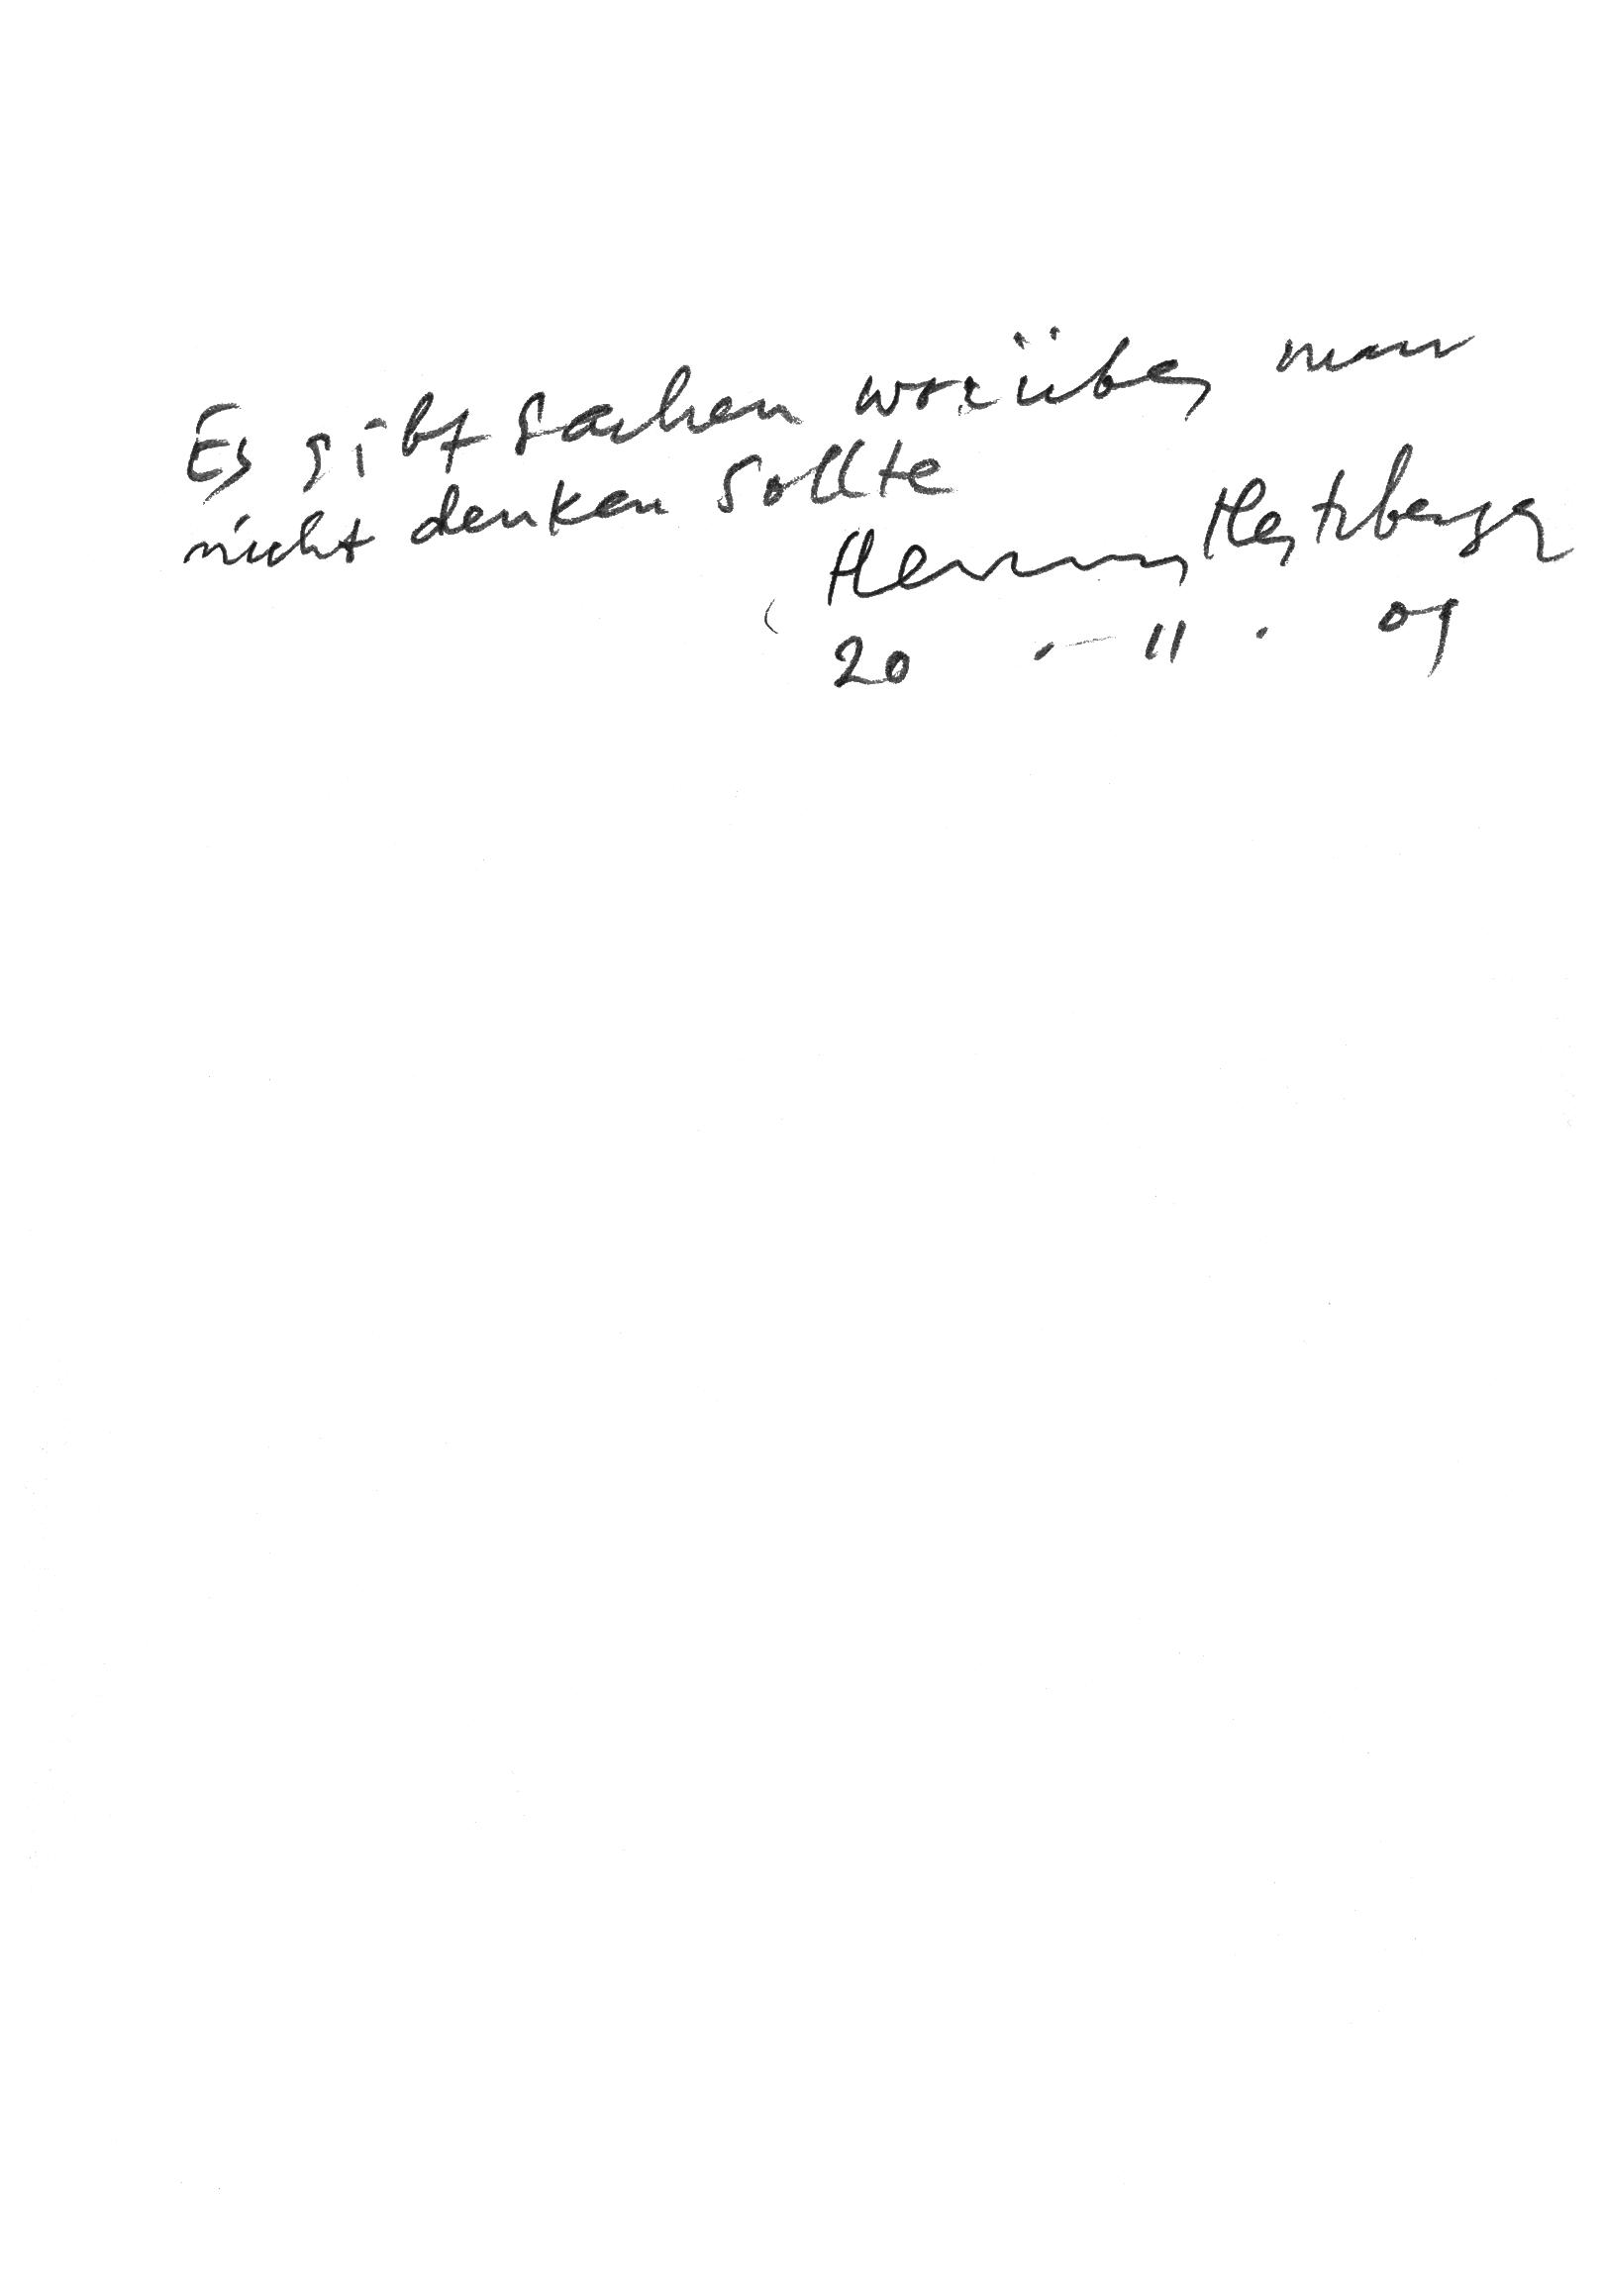 Es gibt sachen worüber man
nicht denken sollte
Herman Hertzberger
20 . 11 . 09